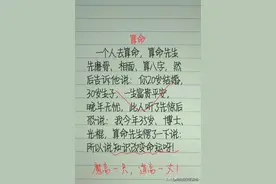 算命
一个人去算命，算命先生
先磨骨、相面、算八字，然
后告诉他说：你20岁结婚，
30岁生子，一生富贵平安，
晚年无忧，此人听了先惊后
恐说：我今年35岁，博士，
光棍，算命先生愣了一下说：
所以说知识改变命运呀！